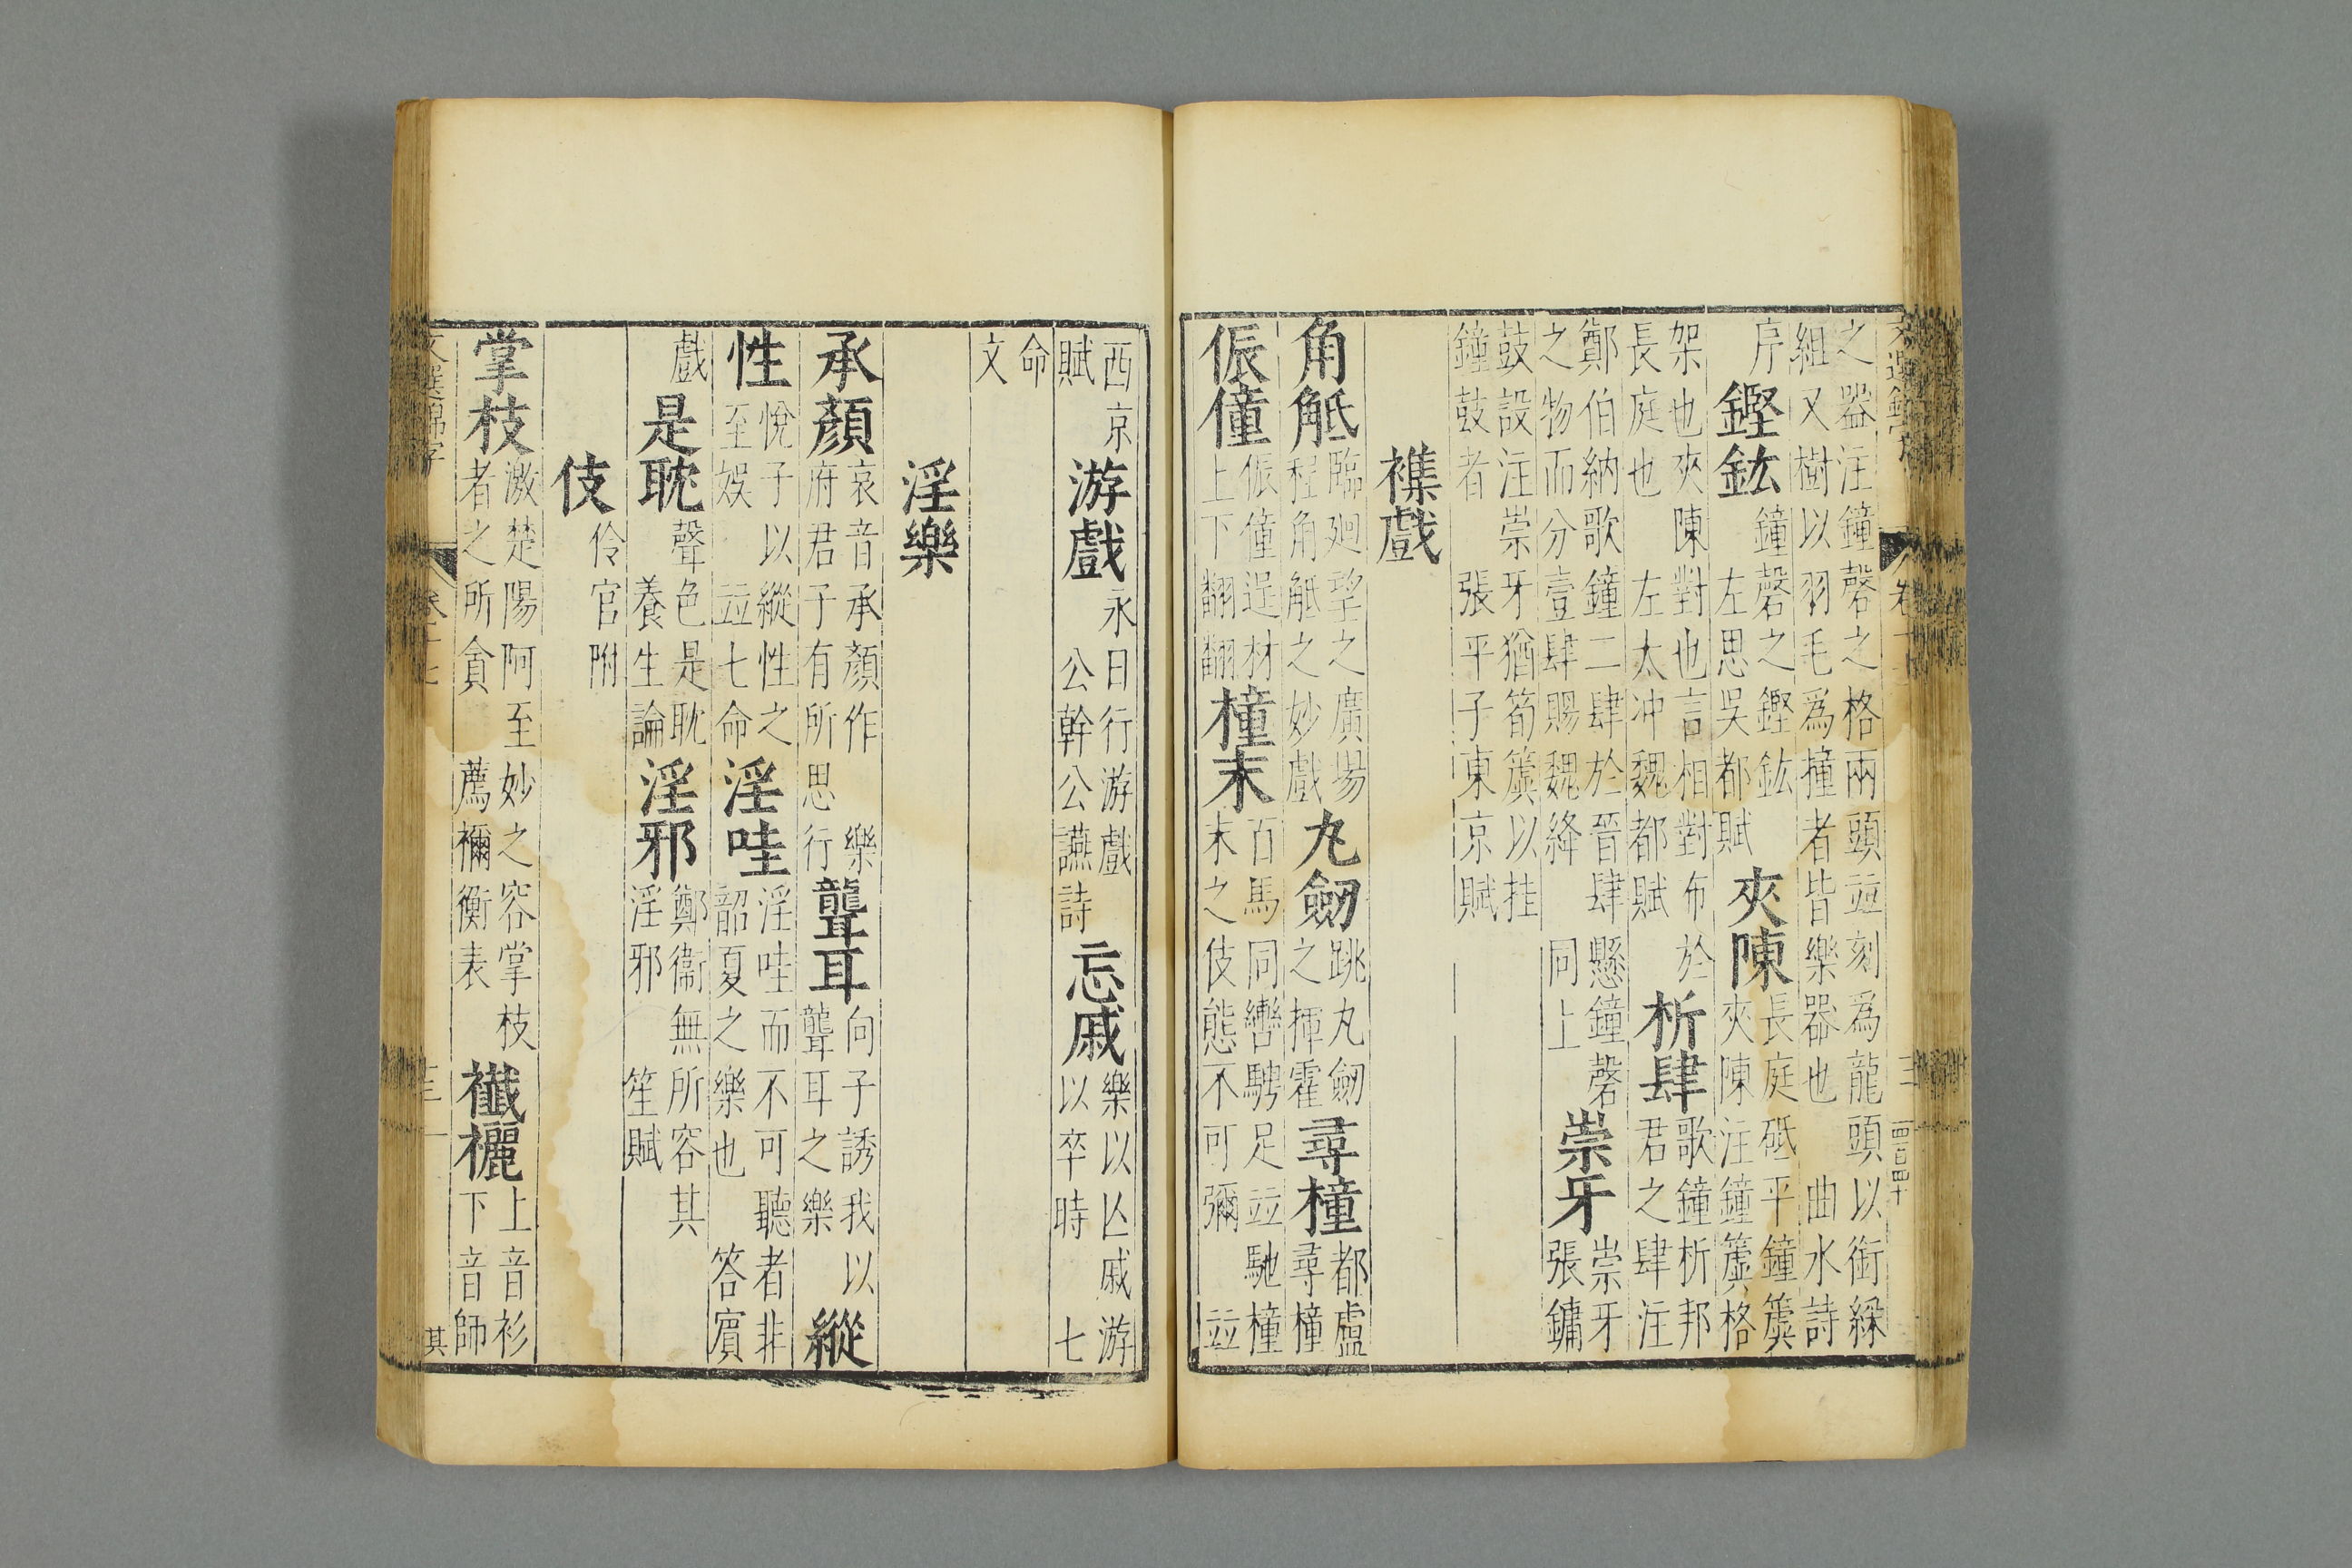 之器注鐘磬之格兩頭竝刻爲龍頭以銜綵組又樹以羽毛爲撞者皆樂器也 曲水詩
序 鏗鈜 鐘磬之鏗鈜 左思吳都賦 夾陳 長庭砥平鐘簴夾陳注鐘簴格
架也夾陳對也言相對布於長庭也 左太冲魏都賦 析肆 歌鐘析邦君之肆注
鄭伯納歌鐘二肆於晉肆懸鐘磬之物而分壹肆賜魏絳 同上 崇牙 崇牙張鏞
鼓設注崇牙猶筍簴以挂鐘鼓者 張平子東京賦
襍戲
角觝 臨迥望之廣場程角觝之妙戲 丸劒 跳丸劒之揮霍 尋橦 都盧尋橦
侲僮 侲僮逞材上下翩翩 橦末 百馬同轡騁足竝馳橦末之伎態不可彌 竝
西京賦 游戲 永日行游戲 公幹公讌詩 忘戚 樂以亾戚游以卒時 七
命 文
淫樂
承顏 哀音承顏作 樂府君子有所思行 聾耳 向子誘我以聾耳之樂 縱
性 悅子以縱性之至娛 竝七命 淫哇 淫哇而不可聽者非韶夏之樂也 答賓
戲 是耽 聲色是耽 養生論 淫邪 鄭衞無所容其淫邪 笙賦
伎 伶官附
掌枝 激楚陽阿至妙之容掌枝者之所貪 薦禰衡表 襳襹 上音衫下音師
文選錦字 卷十七 其